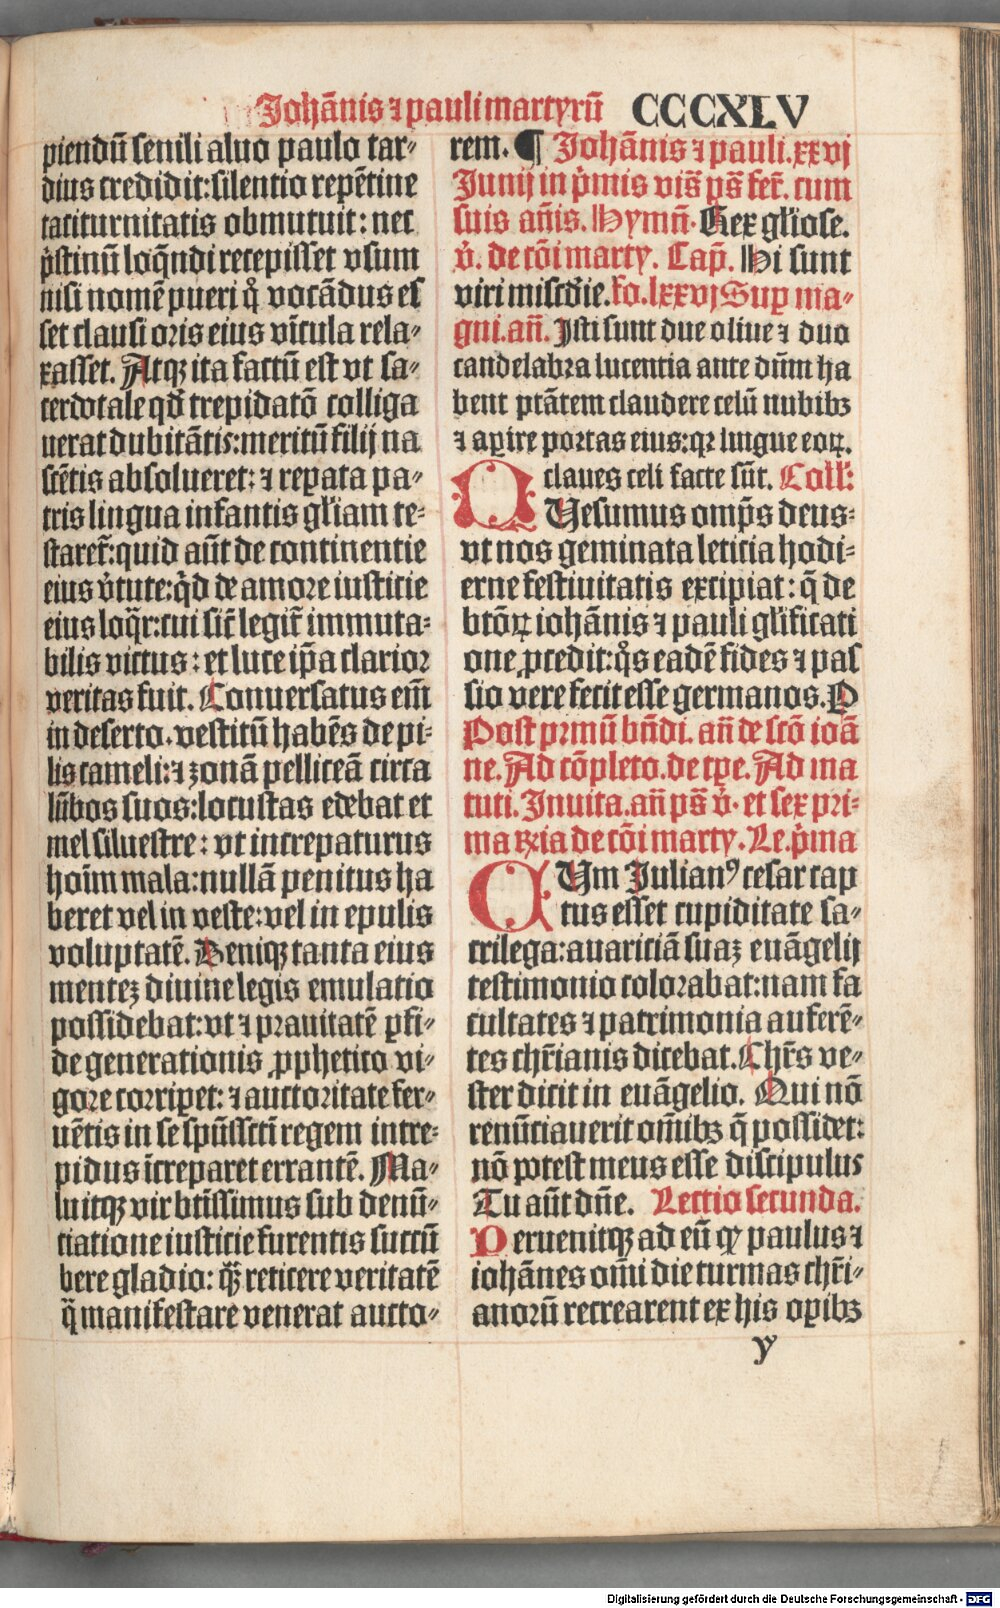 Johānis ⁊ pauli martyrū CCCXLV
piendū senili aluo paulo tar⸗
dius credidit:silentio repētine
taciturnitatis obmutuit: nec
p̄stinū loq̄ndi recepisset vsum
nisi nomē pueri q̊ vocādus es
set clausi oris eius vīcula rela⸗
xasset. Atqꝫ ita factū est vt sa⸗
cerdotale qđ trepidatō colliga
uerat dubitātis:meritū filij na
scētis absolueret: ⁊ reꝑata pa⸗
tris lingua infantis gl̄iam te⸗
staret̄:quid aūt de continentie
eius v̄tute:q̊d de amore iusticie
eius loq̄r:cui sic̄ legit̄ immuta⸗
bilis victus: et luce ip̄a clarior
veritas fuit. Conuersatus em̄
in deserto. vestitū habēs de pi⸗
lis cameli:⁊ zonā pelliceā circa
lūbos suos:locustas edebat et
mel siluestre: vt increpaturus
hoīm mala:nullā penitus ha
beret vel in veste:vel in epulis
voluptatē. Deniqꝫ tanta eius
menteꝫ diuine legis emulatio
possidebat:vt ⁊ prauitatē ꝑfi⸗
de generationis ꝓphetico vi⸗
gore corriꝑet: ⁊ auctoritate fer⸗
uētis in se sp̄ussctī regem intre⸗
pidus īcreparet errantē. Ma⸗
luitqꝫ vir btīssimus sub denū⸗
tiatione iusticie furentis succū
bere gladio: q̄ꝫ reticere veritatē
q̄ manifestare venerat aucto⸗
rem. ¶ Johānis ⁊ pauli.xxvj
Junij in p̄mis vis̄ ps̄ fer̄. cum
suis an̄is. Hymn̄. Rex gl̄iose.
v̄. de cōi marty. Cap̄. Hi sunt
viri miscd̄ie.fo.lxxvj Suꝑ ma⸗
gni.an̄. Isti sunt due oliue ⁊ duo
candelabra lucentia ante dn̄m ha
bent ptātem claudere celū nubibꝫ
⁊ aꝑire portas eius:qꝛ lingue eoꝝ.
claues celi facte sūt. Coll̄:
QVesumus omp̄s deus⸗
vt nos geminata leticia hodi⸗
erne festiuitatis excipiat: q̄ de
btōꝝ iohānis ⁊ pauli gl̄ificati
one ꝓcedit:q̊s eadē fides ⁊ pas
sio vere fecit esse germanos.P
Post prmū bn̄di. an̄ de scō ioā
ne. Ad cōpleto.de tꝑe. Ad ma
tuti. Inuita.an̄ ps̄ v̄. et sex pri⸗
ma rn̄ia de cōi marty. Le.p̄ma
CVm Julianꝰ cesar cap
tus esset cupiditate sa⸗
crilega:auariciā suaꝫ euāgelij
testimonio colorabat:nam fa
cultates ⁊ patrimonia auferē⸗
tes chr̄ianis dicebat. Chr̄s ve⸗
ster dicit in euāgelio. Qui nō
renūciauerit om̄ibꝫ q̄ possidet:
nō potest meus esse discipulus
Tu aūt dn̄e. Lectio secunda.
Peruenitqꝫ ad eū ꝙ paulus ⁊
iohānes om̄i die turmas chr̄i⸗
anorū recrearent ex his oꝑibꝫ
y
Digitalisierung gefördert durch die Deutsche Forschungsgemeinschaft - DFG